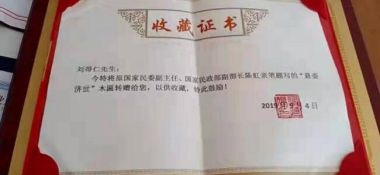 收藏证书
刘得仁先生：
今特将原国家民委副主任、国家民政部副部长陈虹亲笔题写的“县壶
济世”木匾转赠给您，以供收藏，特此鼓励！
2019年9月4日